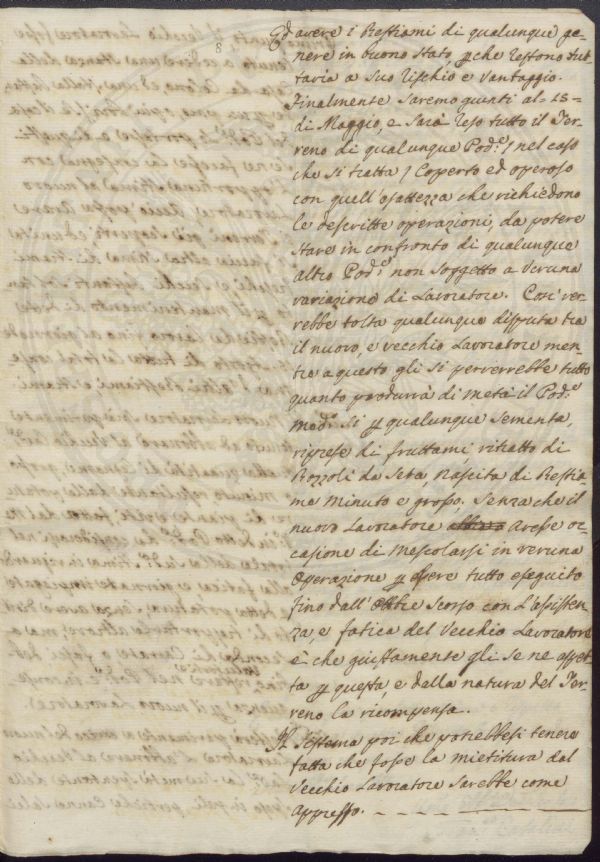 8
Ed avere i Bestiami di qualunque ge-
nere in buono stato, pche restono tut-
tavia a Suo rischio e vantaggio.
Finalmente Saremo giunti al = 15 =
di Maggio, e Sarà reso tutto il Ter-
reno di qualunque Pod:e / nel caso
che Si tratta / Coperto ed operoso
con quell'esattezza che richiedono
le descritte operazioni, da potere
Stare in confronto di qualunque
altro Pod:e non Soggetto a Veruna
variazione di Lavoratore. Cosi ver-
rebbe tolta qualunque disputa tra
il nuovo, e vecchio Lavoratore men-
tre a questo gli Si perverrebbe tutto
quanto produrrà di metà il Pod:e
mod:o Si p qualunque Sementa,
riprese di fruttami ritratto di
Bozzoli da Seta, Nascita di Bestia
me Minuto e grosso, Senza che il
nuovo Lavoratore avesse oc-
casione di Mescolarsi in veruna
Operazione p essere tutto eseguito
fino dall' Ottbre Scorso con L'assisten-
za, e fatica del Vecchio Lavoratore
è che giustamente gli Se ne aspet-
ta p questa, e dalla natura del Ter-
reno la ricompensa.
Il Sistema poi che potrebbesi tenere
fatta che fosse la mietitura dal
Vecchio Lavoratore Sarebbe come
appresso.